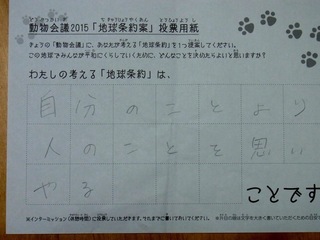 動物会議2015「地球条約案」投票用紙
きょうの「動物会議」に、あなたが考える「地球条約」を1つ提案してください。
この地球でみんなが平和にくらしていくために、どんなことを決めたらよいと思いますか?
わたしの考える「地球条約」は、
自分のことより
人のことを思い
やる
ことです
※インターミッション(休憩時間)に投票していただきます。それまでご書いておいてください。